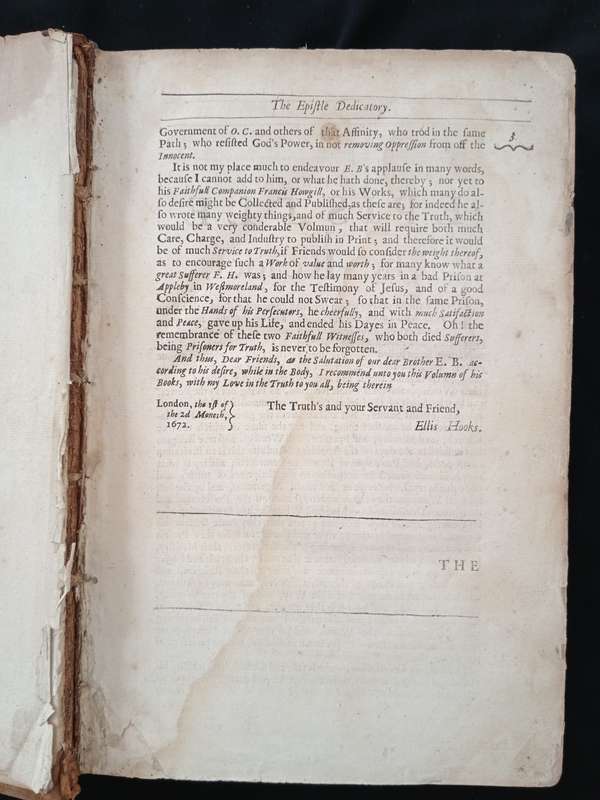 The Epistle Dedicatory.
Government of O. C. and others of that Affinity, who trod in the same
3.
Path; who resisted God's Power, in not removing Oppression from off the
Innocent.
It is not my place much to endeavour E. B's applause in many words,
because I cannot add to him, or what he hath done, thereby; nor yet to
his Faithfull Companion Francis Howgill, or his Works, which many do al-
so desire might be Collected and Published, as these are; for indeed he al-
so wrote many weighty things, and of much Service to the Truth, which
would be a very conderable Volmun, that will require both much
Care, Charge, and Industry to publish in Print; and therefore it would
be of much Service to Truth, if Friends would so consider the weight thereof,
as to encourage such a Work of value and worth; for many know what a
great Sufferer F. H. was; and how he lay many years in a bad Prison at
Appleby in Westmoreland, for the Testimony of Jesus, and of a good
Conscience, for that he could not Swear; so that in the same Prison,
under the Hands of his Persecutors, he cheerfully, and with much Satisfaction
and Peace, gave up his Life, and ended his Dayes in Peace. Oh! the
remembrance of these two Faithfull Witnesses, who both died Sufferers,
being Prisoners for Truth, is never to be forgotten.
And thus, Dear Friends, as the Salutation of our dear Brother E. B. ac-
cording to his desire, while in the Body, I recommend unto you this Volume of his
Books, with my Love in the Truth to you all, being therein
London, the 1st of
the 2d Moneth,
1672.
The Truth's and your Servant and Friend,
Ellis Hooks.
THE